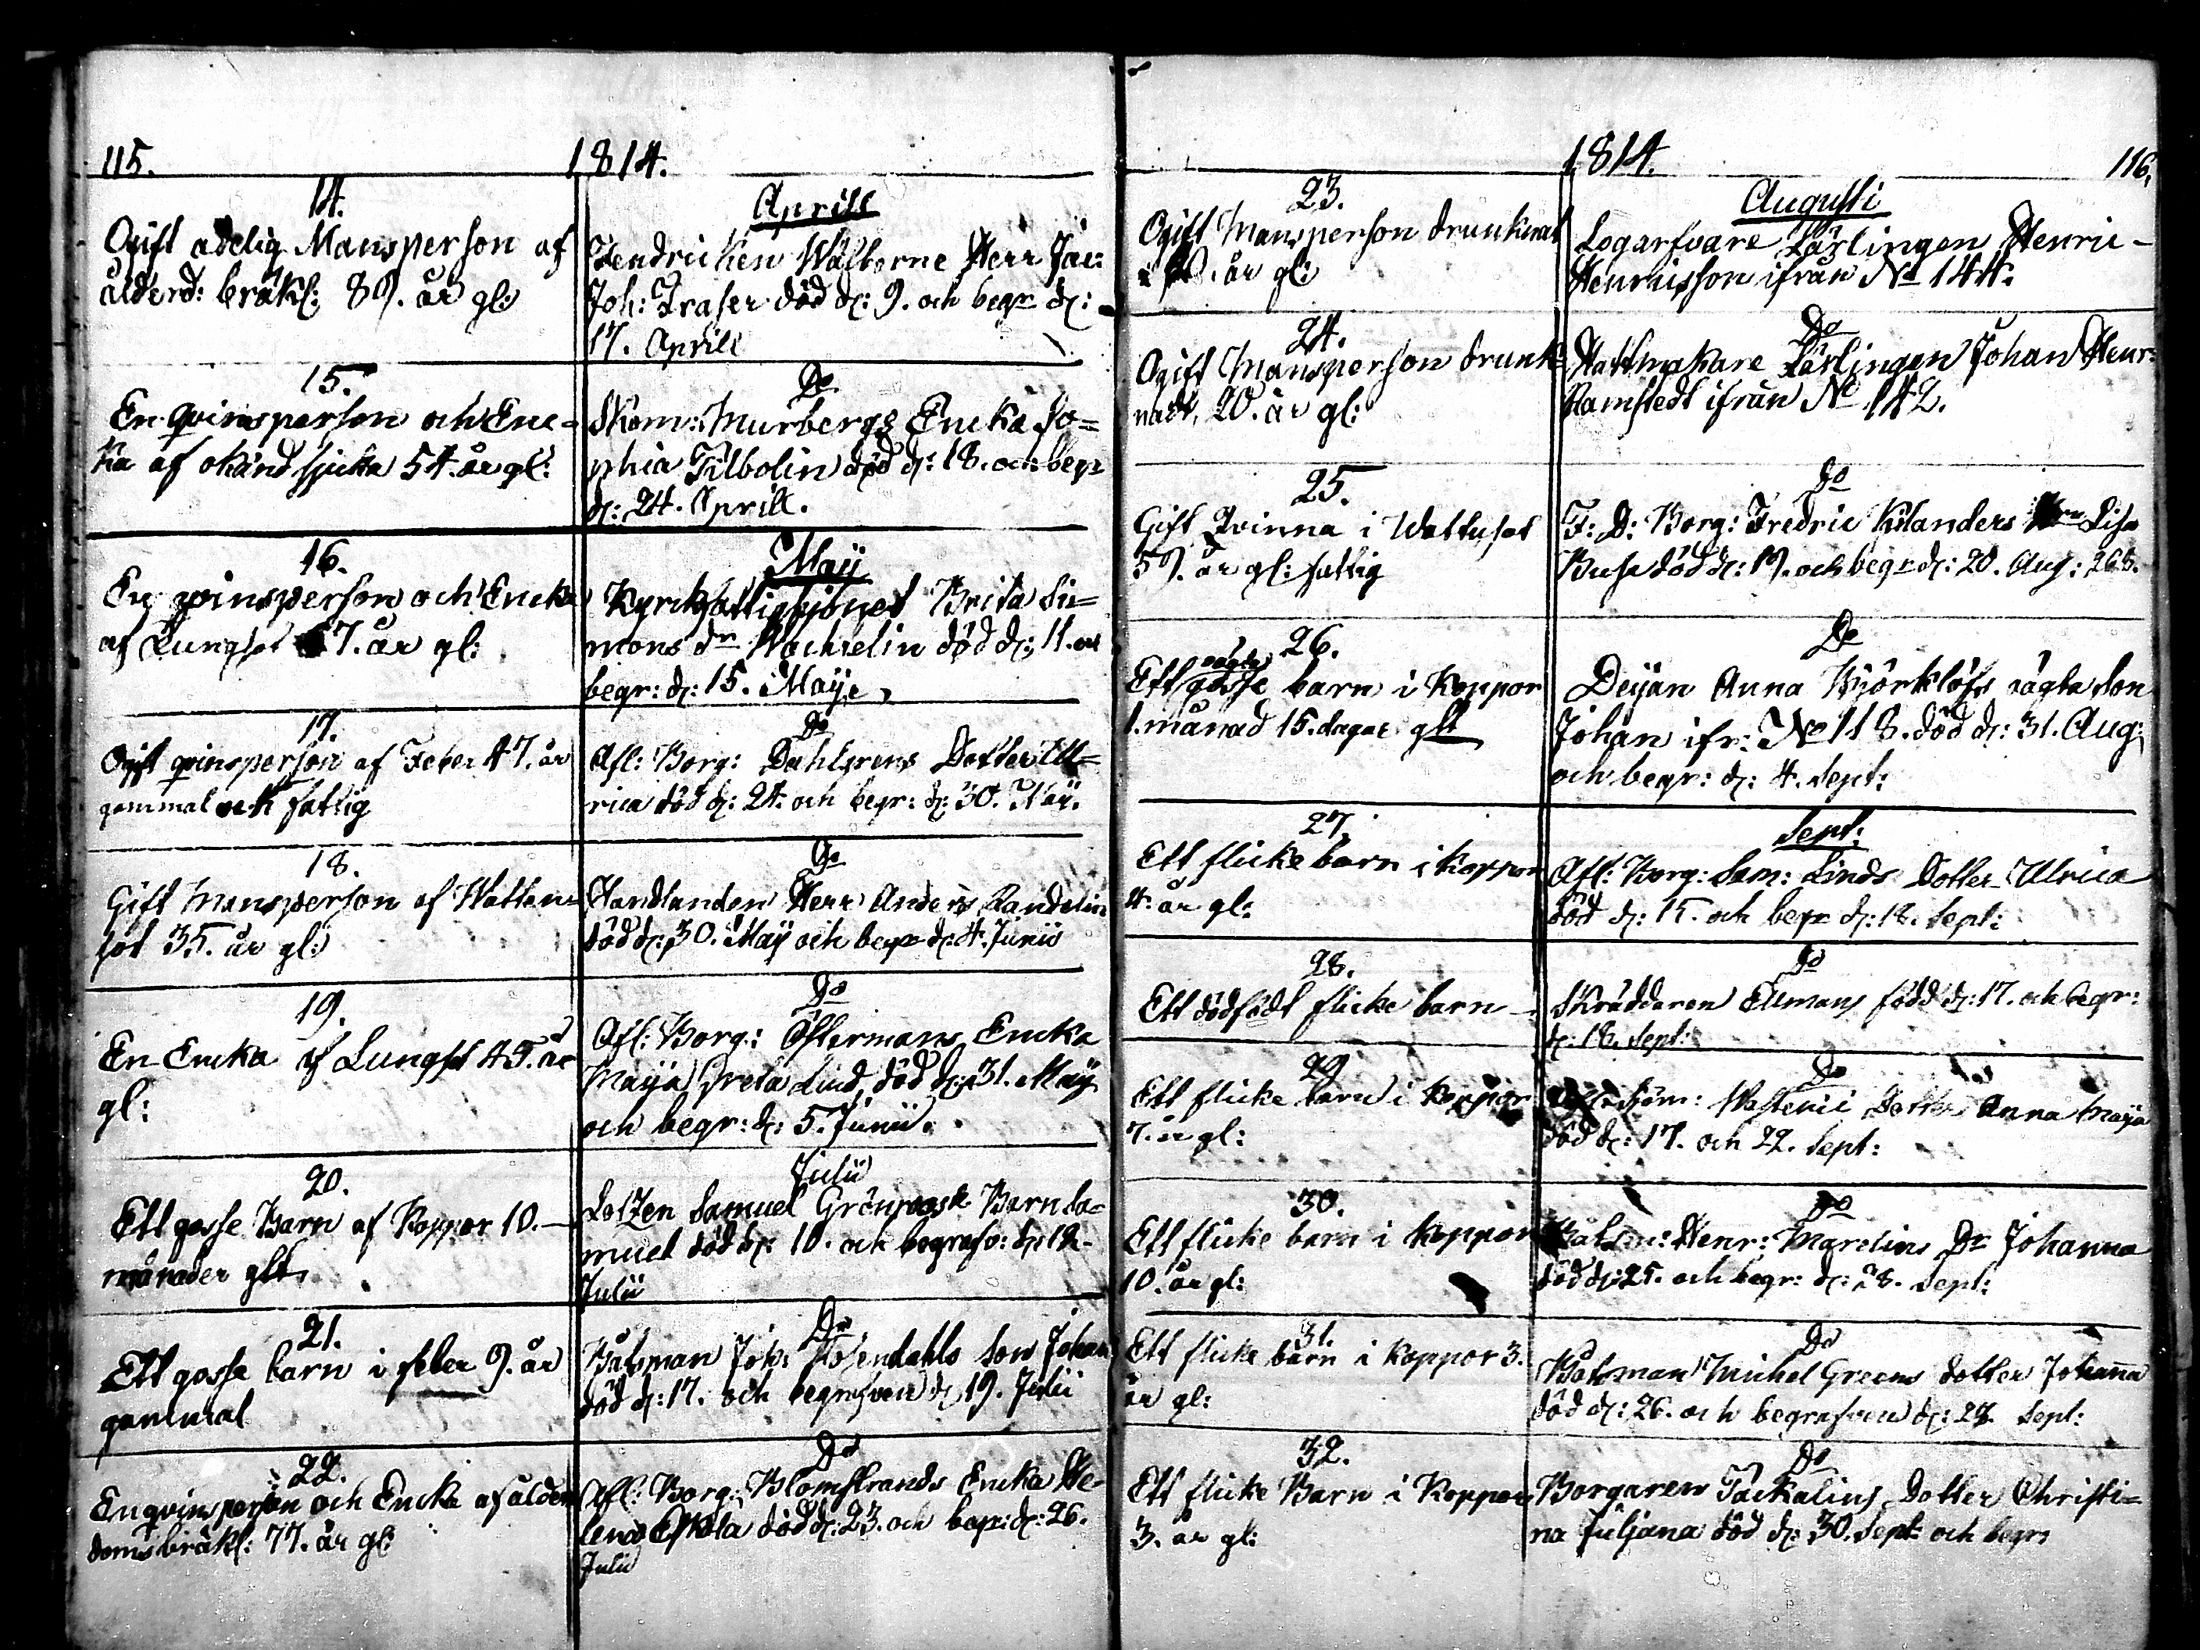 115.
1814.
14.
Ogift adelig Mansperson af
ålderd: bräkl: 89. år gl:
Aprill
Herr Jac:
Joh: Fraser död d: 9. och begr d:
17. Aprill
15.
En qvinsperson och Enc-
ka af okänd sjuka 54. år gl:
Do
Skom: Murbergs Encka So=
phia Tilbolin död d: 18. och begr
d: 24. Aprill.
16.
En qvinsperson och Encka
af Lungsot 67. år gl:
Maij
Kyrkfattighjonet Brita Si=
mons dr död d: 11. och
begr: d: 15. Maije
17.
Ogift qvinsperson af Feber 47. år
gammal och fattig
Do
Afl: Borg: Dahlgrens Dotter Ul=
rica död d: 24. och begr: d: 30. Maij.
18.
Gift Mansperson af Watten
sot 35. år gl:
Do
Handlanden Herr Anders Randelin
död d: 30. Maij och begr d: 4. Junii
19.
En Encka af Lungsot 45. år
gl:
Do
Afl: Borg: Östermans Encka
Maija Greta Lind, död d: 31. Maij
och begr: d: 5. Junii.
20.
Ett gosse Barn af Koppor 10.
månader glt.
Julii
Lotzen Samuel Grönroos Barn Sa=
muel död d: 10. och begrafv: d: 12.
Julii
21.
Ett gosse barn i feber 9. år
gammal
Do
Båtsman Joh: Rosendahls Son Johan
död d: 17. och begrafven d: 19. Julii
22.
En qvinsperson och Encka af ålder
doms bräkl: 77. år gl:
Do
Afl: Borg: Blomstrands Encka He-
lena Eskola död d: 23. och begr: d: 26.
Julii
1814.
116.
23.
Ogift Mansperson drunknat
år gl:
Augusti
Logarfvare Lärlingen Henric
Henricsson ifrån No 144.
24.
Ogift Mansperson drunk-
nadt, 20. år gl:
Do
Hattmakare Lärlingen Johan Henr:
Ramstedt ifrån No 142.
25.
Gift Qvinna i Wattusot
59. år gl: fattig
do
F: D: Borg: Fredric Kilanders Lisa
Busa död d: 19. och begr d: 20. Aug:
26.
Ett oägta gosse barn i Koppor
1. månad 15. dagar glt
Do
Deijan Anna Björklöfs oägta Son
Johan ifr: No 118. död d: 31. Aug:
och begr: d: 4. Sept:
27.
Ett flicke barn i Koppor
4. år gl:
Sept:
Afl: Borg: Sam: Linds Dotter Ulrica
död d: 15. och begr d: 18. Sept:
28.
Ett dödfödt flicke barn
do
Skräddaren Ellmans född d: 17. och begr:
d: 18. Sept:
29
Ett flicke barn i Koppor
7. år gl:
Do
Dotter Anna Maija
död d: 17. och 22. Sept:
30.
Ett flicke barn i Koppor
10. år gl:
Do
Båtsm: Henr: Marelins Dr Johanna
död d: 25. och begr: d: 28. Sept:
31.
Ett flicke barn i Koppor 3.
år gl:
Do
Båtsman Michel Greens dotter Johanna
död d: 26. och begrafven d: 28. Sept:
32.
Ett flicke Barn i Koppor
3. år gl:
Do
Borgaren Tackalins Dotter Christi=
na Juljana död d: 30. Sept: och begr: